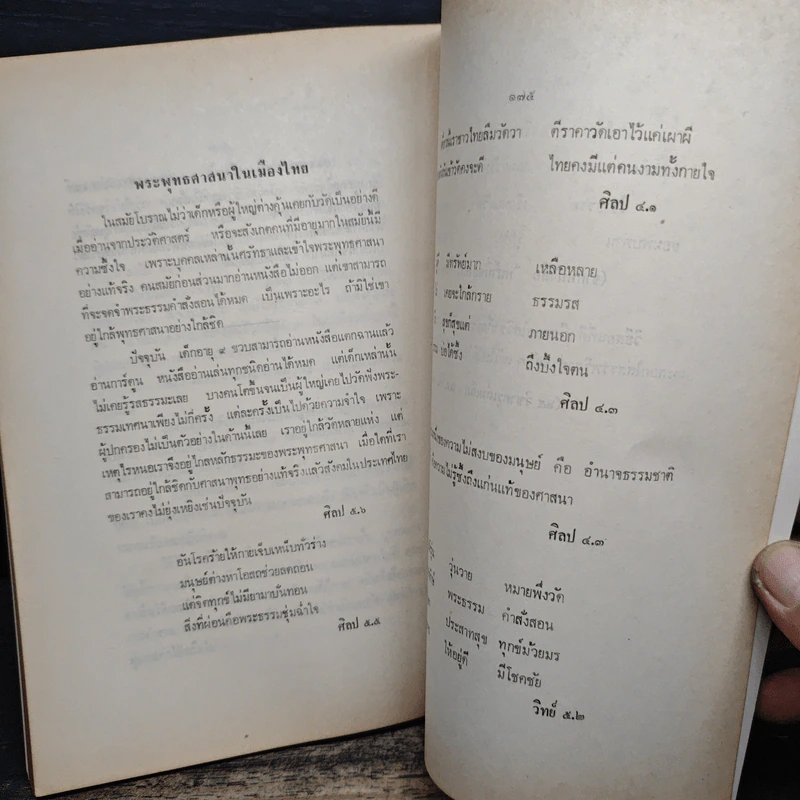 พระพุทธศาสนาในเมืองไทย
ในสมัยโบราณไม่ว่าเด็กหรือผู้ใหญ่ต่างคุ้นเคยกับวัดเป็นอย่างดี
เมื่ออ่านจากประวัติศาสตร์ หรือจะสังเกตคนที่มีอายุมากในสมัยนี้มี
ความซึ้งใจ เพราะบุคคลเหล่านั้นศรัทธาและเข้าใจพระพุทธศาสนา
อย่างแท้จริง คนสมัยก่อนส่วนมากอ่านหนังสือไม่ออก แต่เขาสามารถ
ที่จะจดจำพระธรรมคำสั่งสอนได้หมด เป็นเพราะอะไร ถ้ามิใช่เขา
อยู่ใกล้พุทธศาสนาอย่างใกล้ชิด
ปัจจุบัน เด็กอายุ ๙ ขวบสามารถอ่านหนังสือแตกฉานแล้ว
อ่านการ์ตูน หนังสืออ่านเล่นทุกชนิดอ่านได้หมด แต่เด็กเหล่านั้น
ไม่เคยรู้รสธรรมะเลย บางคนโตขึ้นจนเป็นผู้ใหญ่เคยไปวัดฟังพระ-
ธรรมเทศนาเพียงไม่กี่ครั้ง แต่ละครั้งเป็นไปด้วยความจำใจ เพราะ
ผู้ปกครองไม่เป็นตัวอย่างในด้านนี้เลย เราอยู่ใกล้วัดหลายแห่ง แต่
เหตุไรหนอเราจึงอยู่ไกลหลักธรรมะของพระพุทธศาสนา เมื่อใดที่เรา
สามารถอยู่ใกล้ชิดกับศาสนาพุทธอย่างแท้จริงแล้วสังคมในประเทศไทย
ของเราคงไม่ยุ่งเหยิงเช่นปัจจุบัน
ศิลป ๕.๖
อันโรคร้ายให้กายเจ็บเหน็บทั่วร่าง
มนุษย์ต่างหาโอสถช่วยลดถอน
แต่จิตทุกข์ไม่มียามาบั่นทอน
สิ่งที่ผ่อนคือพระธรรมชุ่มฉ่ำใจ
ศิลป ๕.๕
๑๗๕
เราชาวไทยลืมวัดวา ตีราคาวัดเอาไว้แค่เผาผี
เข้าวัดคงจะดี ไทยคงมีแต่คนงามทั้งกายใจ
ศิลป ๔.๑
มีทรัพย์มาก เหลือหลาย
เคยจะใกล้กราย ธรรมรส
สุขแค่ ภายนอก
ถึงบึ้งใจตน
ศิลป ๔.๓
ของความไม่สงบของมนุษย์ คือ อำนาจธรรมชาติ
ความไม่รู้ซึ้งถึงแก่นแท้ของศาสนา
ศิลป ๔.๓
วุ่นวาย หมายพึ่งวัด
พระธรรม คำสั่งสอน
ประสาทสุข ทุกข์ม้วยมร
ให้อยู่ดี มีโชคชัย
วิทย์ ๕.๒